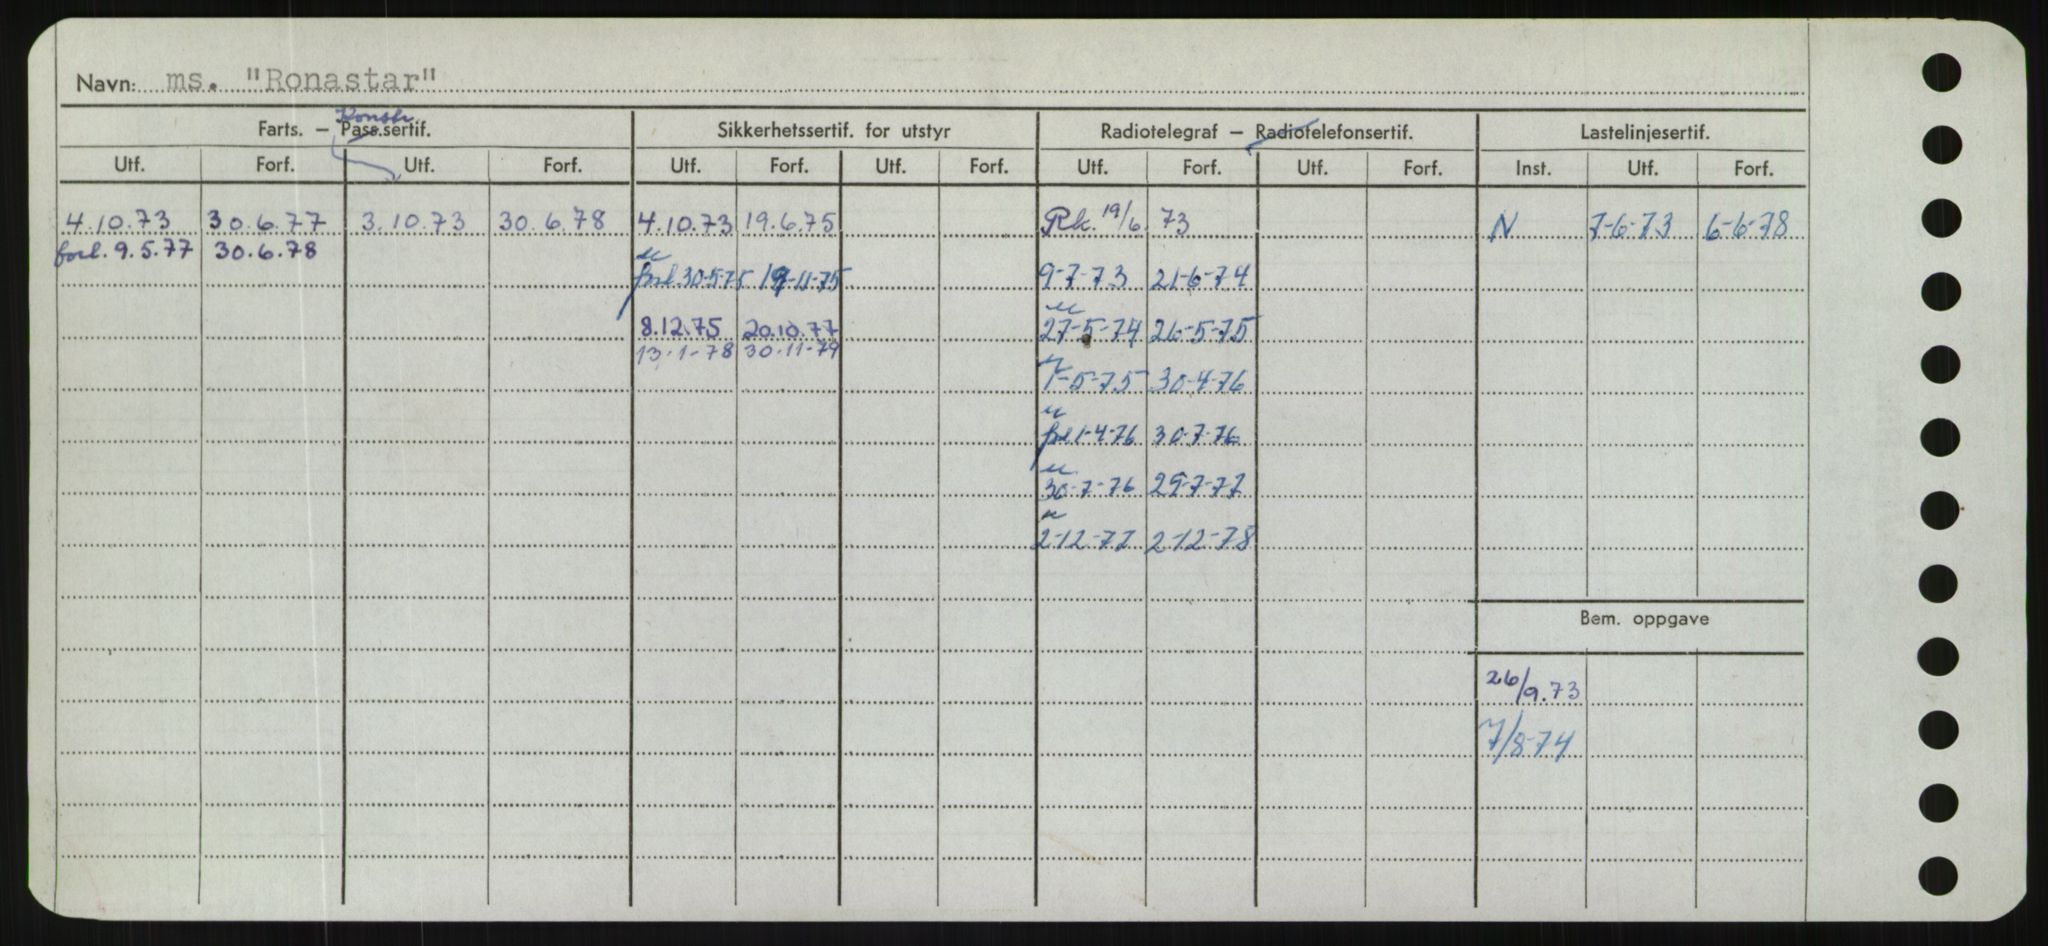 Navn: ms. "Ronastar"
Konstr
Farts. — Pass.sertif. Sikkerhetssertif. for utstyr Radiotelegraf — Radiotelefonsertif. Lastelinjesertif.
Utf. Forf. Utf. Forf. Utf. Forf. Utf. Forf. Utf. Forf. Utf. Forf. Inst. Utf. Forf.
4.10.73 30.6.77 3.10.73 30.6.78 4.10.73 19.6.75 Rk. 19/6 73 N 7-6-73 6-6-78
forl. 9.5.77 30.6.78
u
forl 30-5-75 19-11-75 9-7-73 21-6-74
u
8.12.75 20.10.77 27-5-74 26-5-75
13-1-78 30-11-79
1-5-75 30-4-76
u
forl 1-4-76 30-7-76
u
30-7-76 29-7-77
u
2-12-77 2-12-78
Bem. oppgave
26/9.73
7/8-74